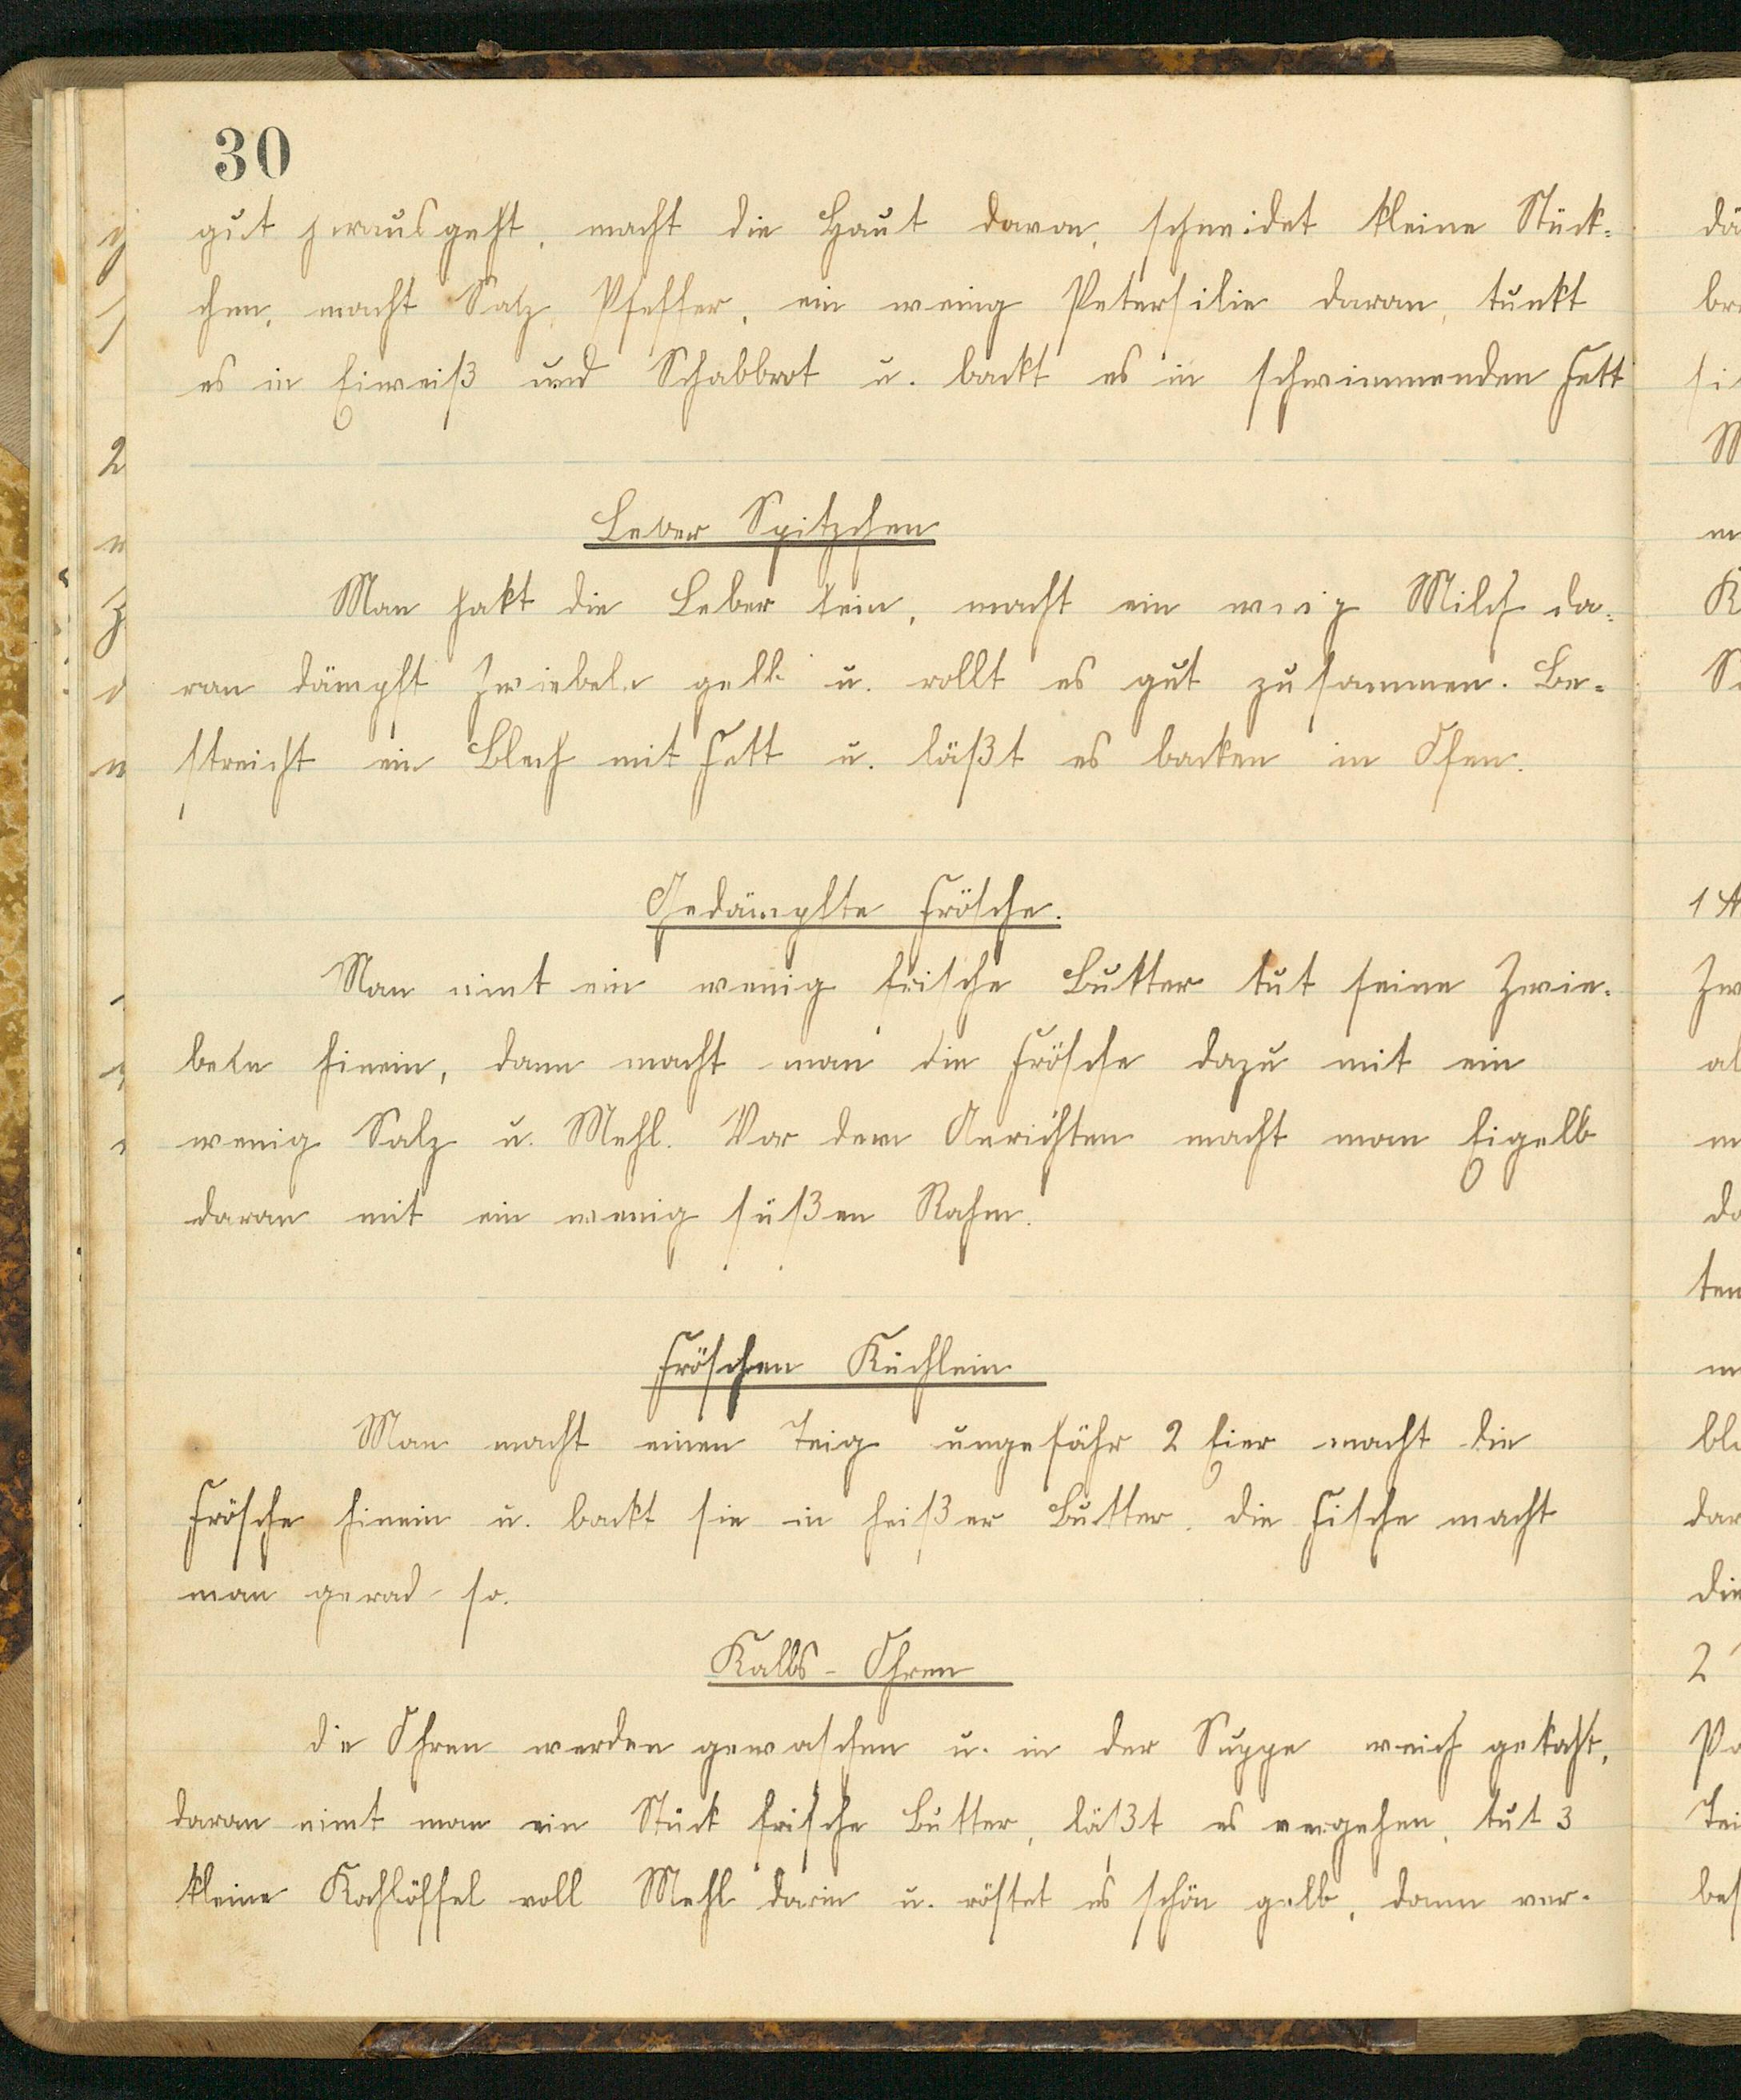 30
gut herausgeht, macht die Haut davon, schneidet kleine Stück-
chen, macht Salz, Pfeffer, ein wenig Petersilie daran, tunkt
es in Eiweiß und Schabbrot u. backt es in schwimmenden Fett
Leber Spitzchen
Man hakt die Leber fein, macht ein wenig Milch da-
ran dämpft Zwiebeln gelb u. rollt es gut zusammen. Be-
streicht ein Blech mit Fett u. läßt es backen in Ofen.
Gedämpfte Frösche.
Man nimt ein wenig frische Butter tut feine Zwie-
beln hinein, dann macht man die Frösche dazu mit ein
wenig Salz u. Mehl. Vor dem Anrichten macht man Eigelb
daran mit ein wenig süßen Rahm.
Fröschen Küchlein
Man macht einen Teig ungefähr 2 Eier macht die
Frösche hinein u. backt sie in heißer Butter. die Fische macht
man gerad so.
Kalbs-Ohren
die Ohren werden gewaschen u. in der Suppe weich gekocht,
daran nimt man ein Stück frische Butter, läßt es vergehen, tut 3
kleine Kochlöffel voll Mehl darin u. röstet es schön gelb, dann ver-